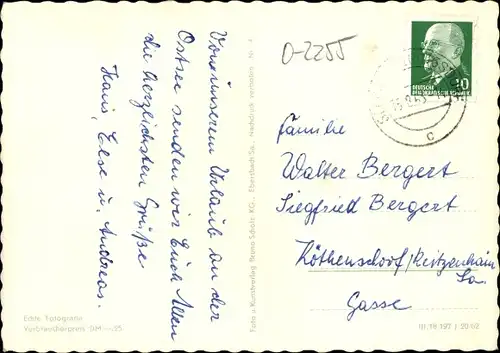 Von unserem Urlaub an der
Ostsee senden wir Euch Allen
die herzlichsten Grüße
Hans, Else u. Andreas.
Echte Fotografie
Verbraucherpreis DM —,25
Foto u. Kunstverlag Bruno Scholz KG., Ebersbach Sa. Nachdruck verboten Nr. 4
0-2255
10
DEUTSCHE
DEMOKRATISCHE REPUBLIK
c
Familie
Walter Bergert
Siegfried Bergert
Köthensdorf/Reitzenhain
Sa.
Gasse
01 18 197 / 20 62